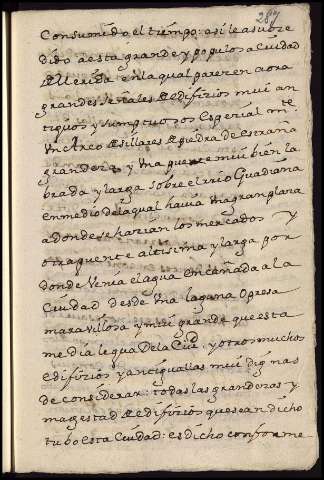 287
Consumido el tiempo: asi le a suce
dido a esta grande y populosa Ciudad
de Merida en la qual pareren aora
grandes señales de edificios mui an
tiquos y sumptuosos Especial mte
Vn Arco de sillares de piedra de estraña
grandeza y Vna puente mui bien la
brada y larga sobre el rrio Guadiana
en medio de la qual hauia Vna gran plaza
adonde se hazian los mercados Y
otra puente altisima y larga por
donde Venía el agua encañada a la
Ciudad desde Vna laguna o presa
marauillosa y mui grande que esta
media legua De la Ciud. y otros muchos
edificios y antiguallas mui dignas
de considerar: todas las grandezas y
magestad de edificios que se an dicho
tubo esta Ciudad: es dicho conforme